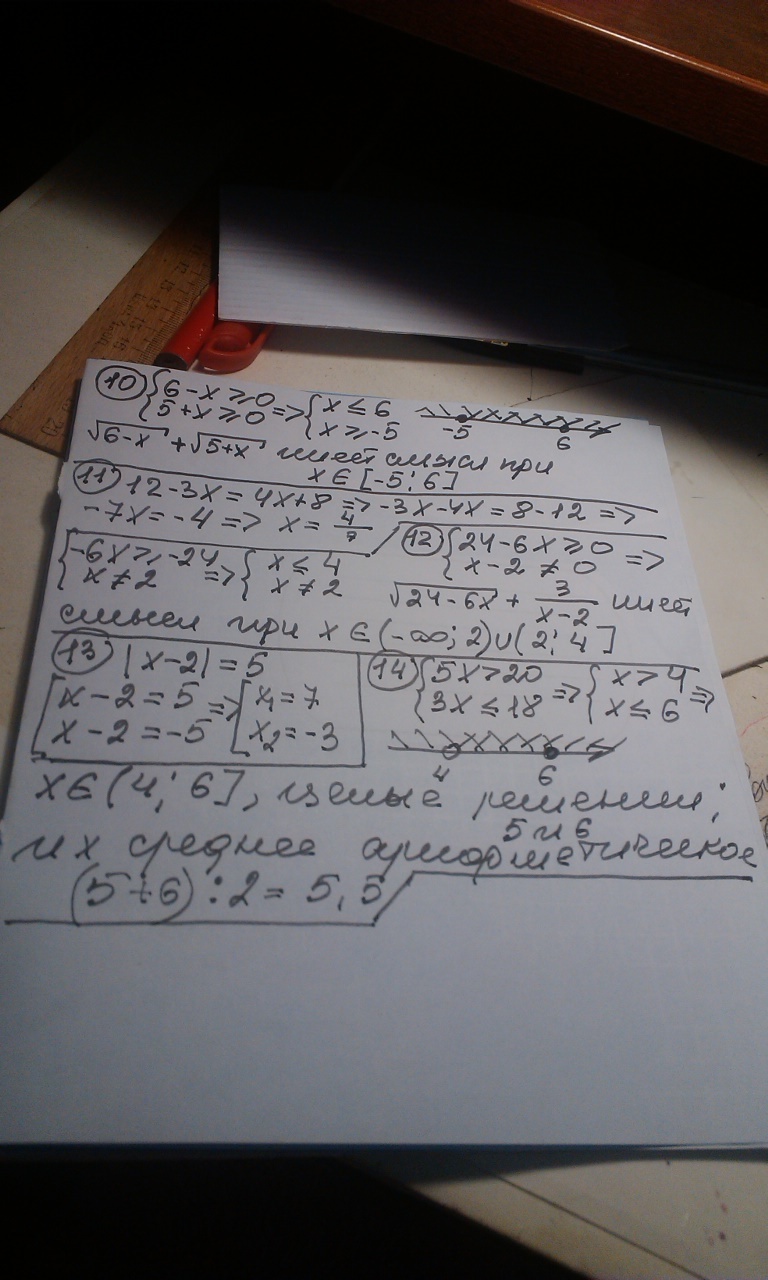 10 { 6-x ≥ 0
5+x ≥ 0 => { x ≤ 6
x ≥ -5
-5 6
√6-x + √5+x имеет смысл при
x ∈ [-5; 6]
11 12-3x = 4x+8 => -3x-4x = 8-12 =>
-7x = -4 => x = 4/7
12 { 24-6x ≥ 0
x-2 ≠ 0 =>
{ -6x ≥ -24
x ≠ 2 => { x ≤ 4
x ≠ 2
√24-6x + 3/(x-2) имеет
смысл при x ∈ (-∞; 2) ∪ (2; 4]
13 |x-2| = 5
[ x-2 = 5
x-2 = -5 => [ x₁ = 7
x₂ = -3
14 { 5x > 20
3x ≤ 18 => { x > 4
x ≤ 6 =>
4 6
x ∈ (4; 6], целые решения:
5 и 6
их среднее арифметическое
(5+6) : 2 = 5,5